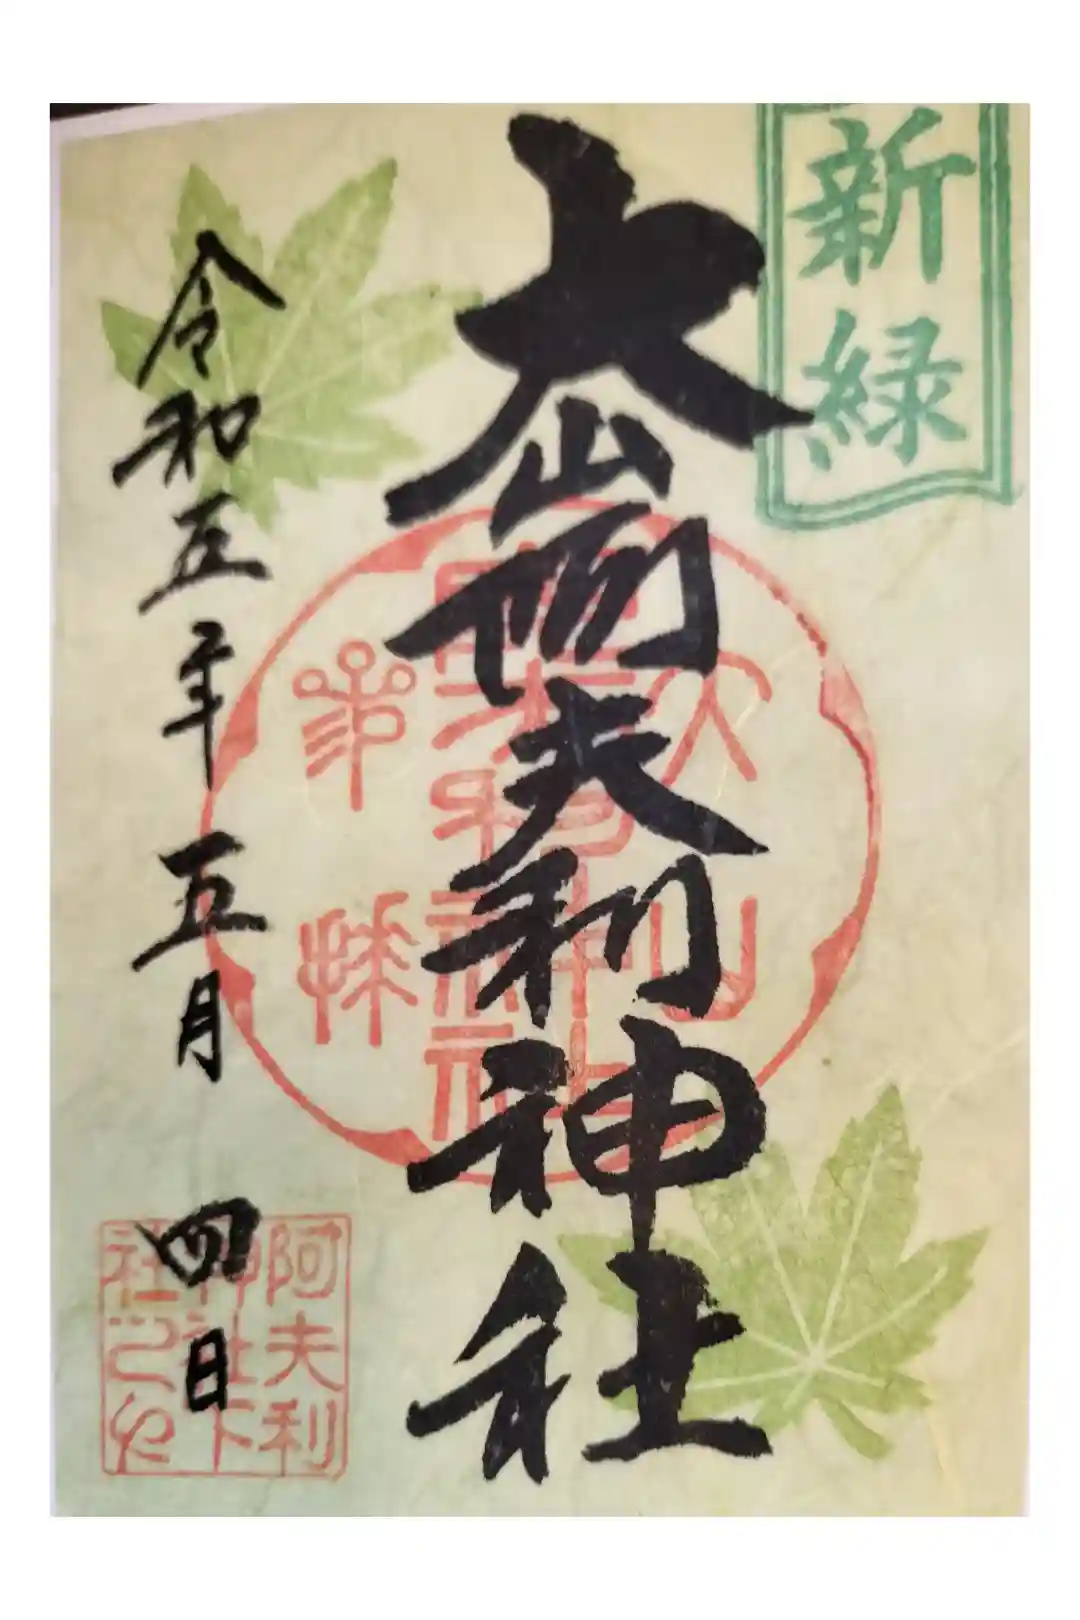 新緑
大山阿夫利神社
令和五年五月四日
阿夫利
神社下
社